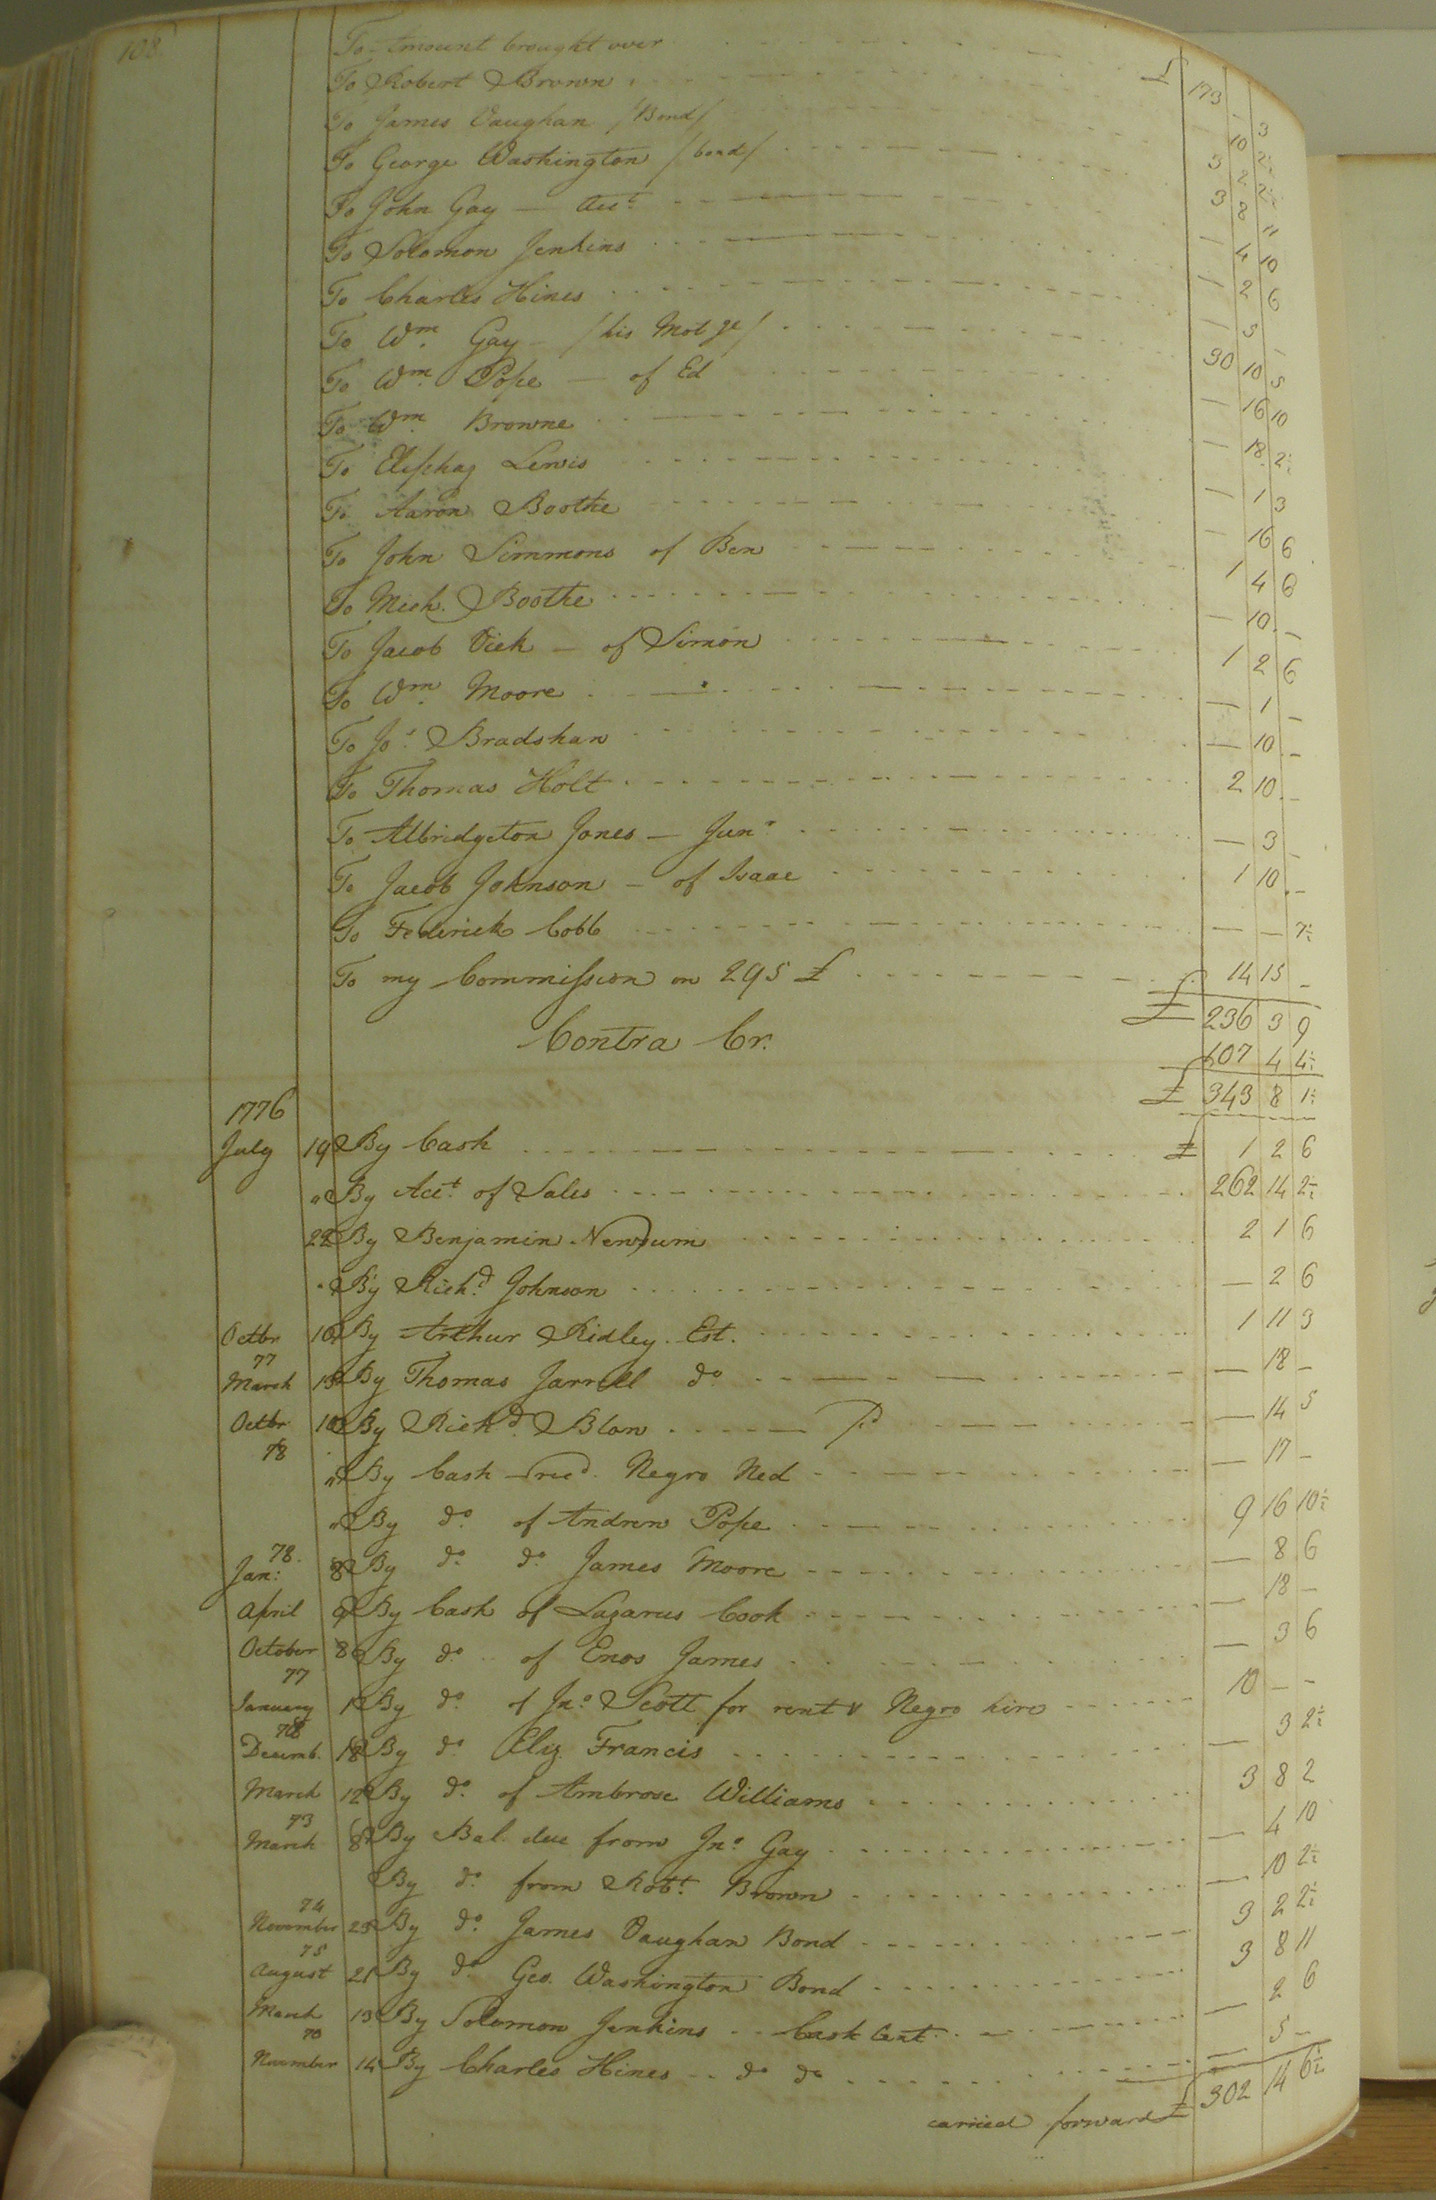 108.
To Amount brought over £ 173 . 3
To Robert Brown 10 2½
To James Vaughan /Bond/ 3 2 2½
To George Washington /bond/ 3 8 11
To John Gay — acct — 4 10
To Solomon Jenkins — 2 6
To Charles Hines — 5 —
To Wm Gay /his Motge/ 30 10 5
To Wm Pope — of Ed — 16 10
To Wm Browne — 18 2½
To Eliphaz Lewis — 1 3
To Aaron Boothe — 16 6
To John Simmons of Ben 1 4 6
To Mich. Boothe — 10 —
To Jacob Vick — of Simon 1 2 6
To Wm Moore — 1 —
To Jos Bradshaw — 10 —
To Thomas Holt 2 10 —
To Albridgeton Jones — Junr — 3 —
To Jacob Johnson — of Isaac 1 10 —
To Federick Cobb — — 7½
To my Commission on 295 £ 14 15 —
£ 236 3 9
Contra Cr. 107 4 4½
£ 343 8 1½
1776
July 19 By Cash £ 1 2 6
" By Acct of Sales 262 14 2½
22 By Benjamin Newsum 2 1 6
" By Richd Johnson — 2 6
Octbr 10 By Arthur Ridley Est. 1 11 3
77
March 13 By Thomas Jarrell do — 18 —
Octbr 10 By Richd Blow — 14 5
78
" By Cash recd. Negro Ned — 17 —
" By do of Andrew Pope 9 16 10½
78.
Jan: 8 By do do James Moore — 8 6
April 9 By Cash of Lazarus Cook — 18 —
October 8 By do of Enos James — 3 6
77
January 1 By do of Jno Scott for rent & Negro hire 10 — —
78
Decemb. 18 By do Eliz Francis — 3 2½
March 12 By do of Ambrose Williams 3 8 2
73
March 8 By Bal. due from Jno Gay — 4 10
By do from Robt Brown — 10 2½
74
November 23 By do James Vaughan Bond 3 2 2½
75
August 21 By do Geo. Washington Bond 3 8 11
March 13 By Solomon Jenkins Cash — 2 6
70
November 14 By Charles Hines do do — 5 —
carried forward £ 302 14 6½